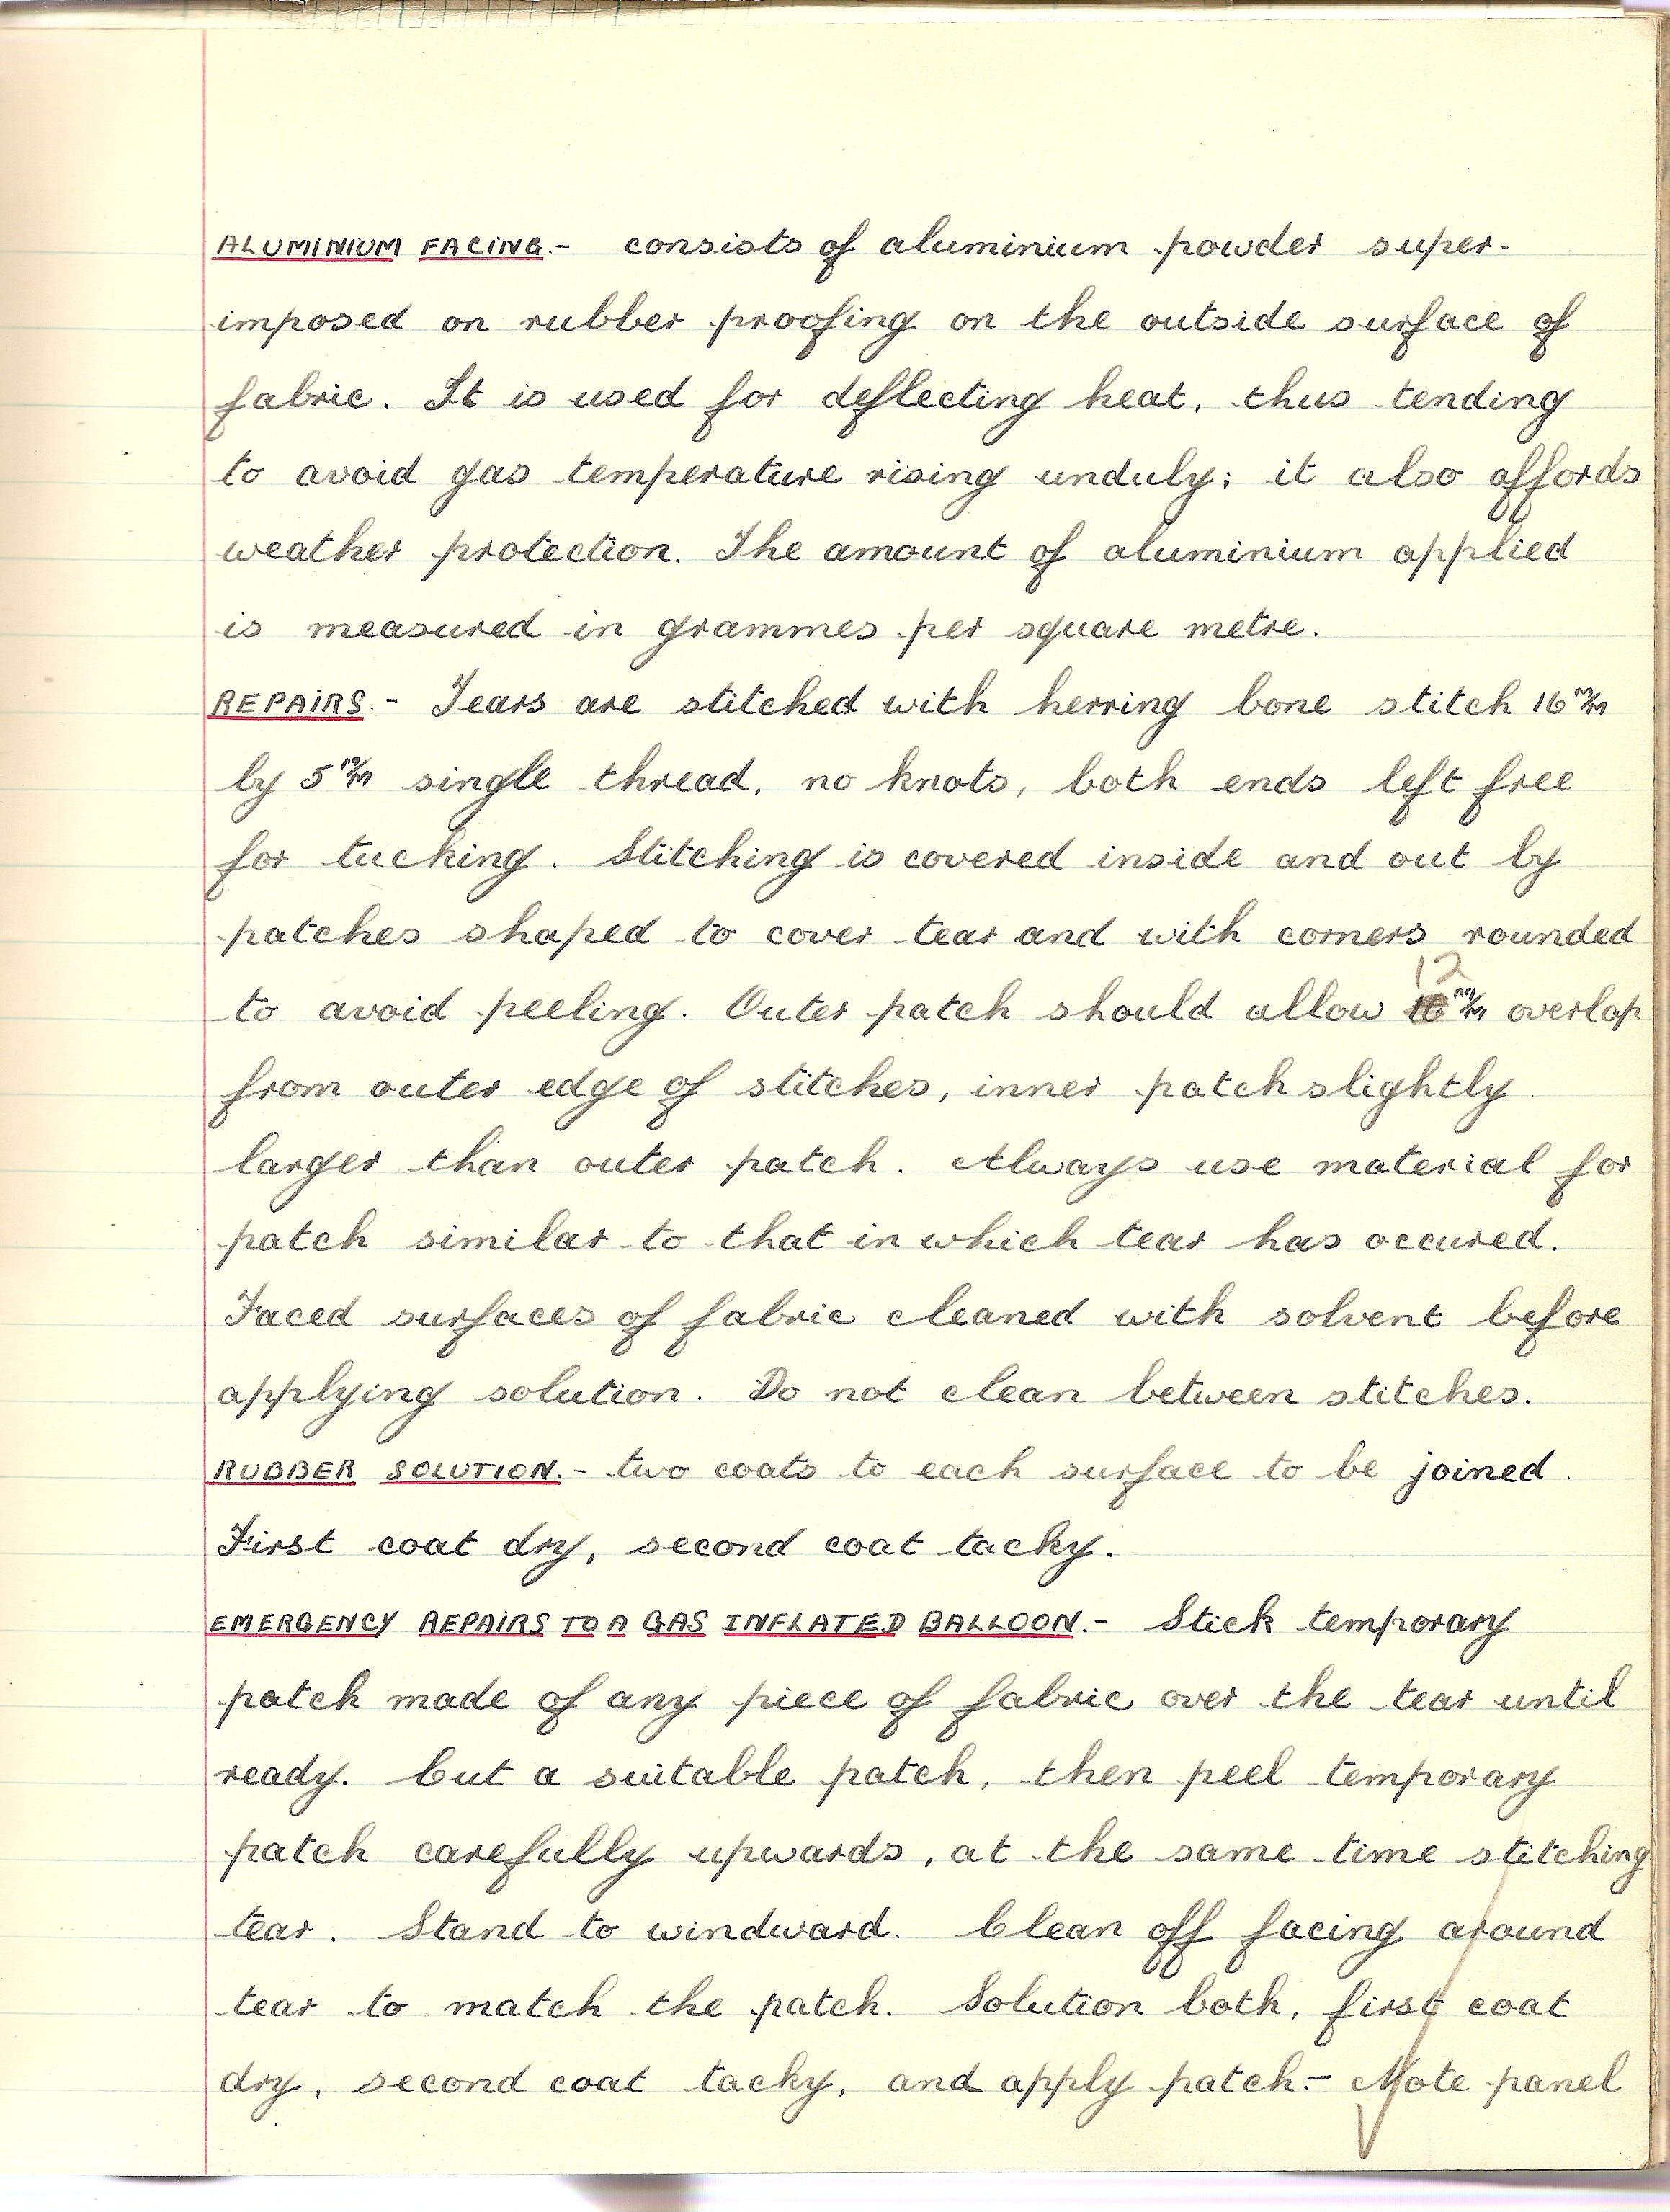 ALUMINIUM FACING.- consists of aluminium powder super-
imposed on rubber proofing on the outside surface of
fabric. It is used for deflecting heat, thus tending
to avoid gas temperature rising unduly; it also affords
weather protection. The amount of aluminium applied
is measured in grammes per square metre.
REPAIRS.- Tears are stitched with herring bone stitch 16 m/m
by 5 m/m single thread, no knots, both ends left free
for tucking. Stitching is covered inside and out by
patches shaped to cover tear and with corners rounded
12
to avoid peeling. Outer patch should allow m/m overlap
from outer edge of stitches, inner patch slightly
larger than outer patch. Always use material for
patch similar to that in which tear has occured.
Faced surfaces of fabric cleaned with solvent before
applying solution. Do not clean between stitches.
RUBBER SOLUTION.- two coats to each surface to be joined.
First coat dry, second coat tacky.
EMERGENCY REPAIRS TO A GAS INFLATED BALLOON.- Stick temporary
patch made of any piece of fabric over the tear until
ready. Cut a suitable patch, then peel temporary
patch carefully upwards, at the same time stitching
tear. Stand to windward. Clean off facing around
tear to match the patch. Solution both, first coat
dry, second coat tacky, and apply patch.- Note panel